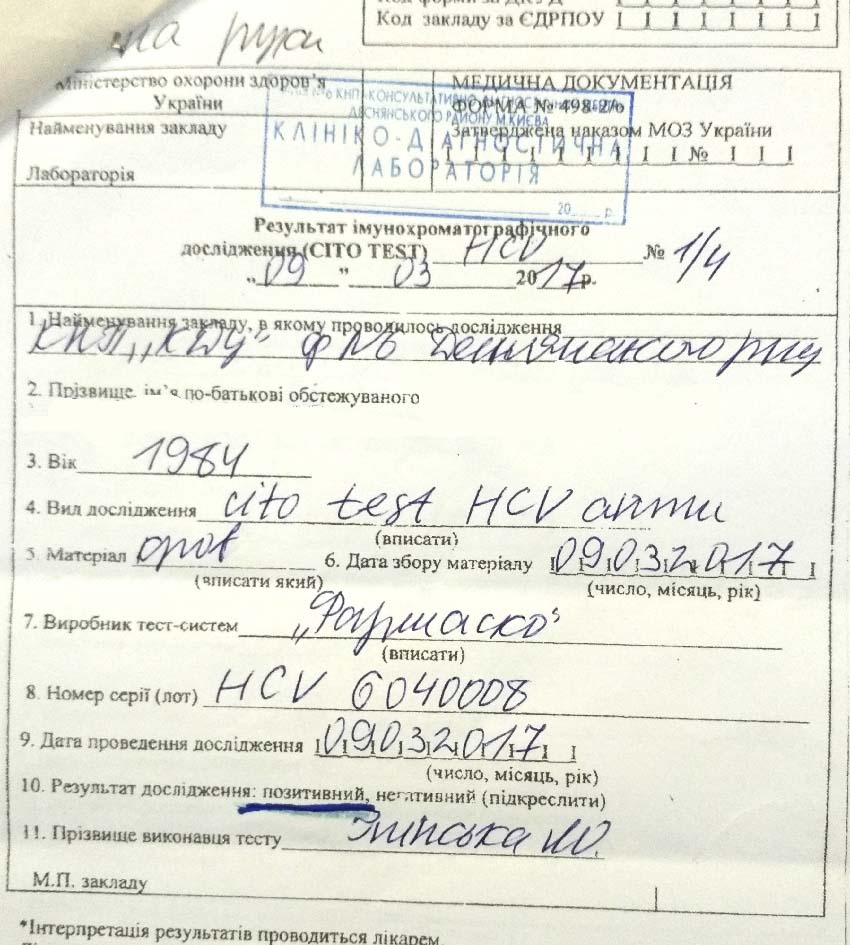 на руки
Код закладу за ЄДРПОУ
Міністерство охорони здоров'я
України
Найменування закладу
Лабораторія
МЕДИЧНА ДОКУМЕНТАЦІЯ
ФОРМА № 498-2/о
Затверджена наказом МОЗ України
№
ДЕСНЯНСЬКОГО РАЙОНУ М.КИЄВА
КЛІНІКО-ДІАГНОСТИЧНА
ЛАБОРАТОРІЯ
20 р.
Результат імунохроматографічного
дослідження (CITO TEST) HCV № 1/4
„09" 03 2017р.
1. Найменування закладу, в якому проводилось дослідження
КНП „КДЦ" ф №6 Деснянського р-ну
2. Прізвище, ім'я, по-батькові обстежуваного
3. Вік 1984
4. Вид дослідження cito test HCV анти
(вписати)
5. Матеріал 6. Дата збору матеріалу 09032017
(вписати який) (число, місяць, рік)
7. Виробник тест-систем „Фармаско"
(вписати)
8. Номер серії (лот) HCV 6040008
9. Дата проведення дослідження 09032017
(число, місяць, рік)
10. Результат дослідження: позитивний, негативний (підкреслити)
11. Прізвище виконавця тесту
М.П. закладу
*Інтерпретація результатів проводиться лікарем